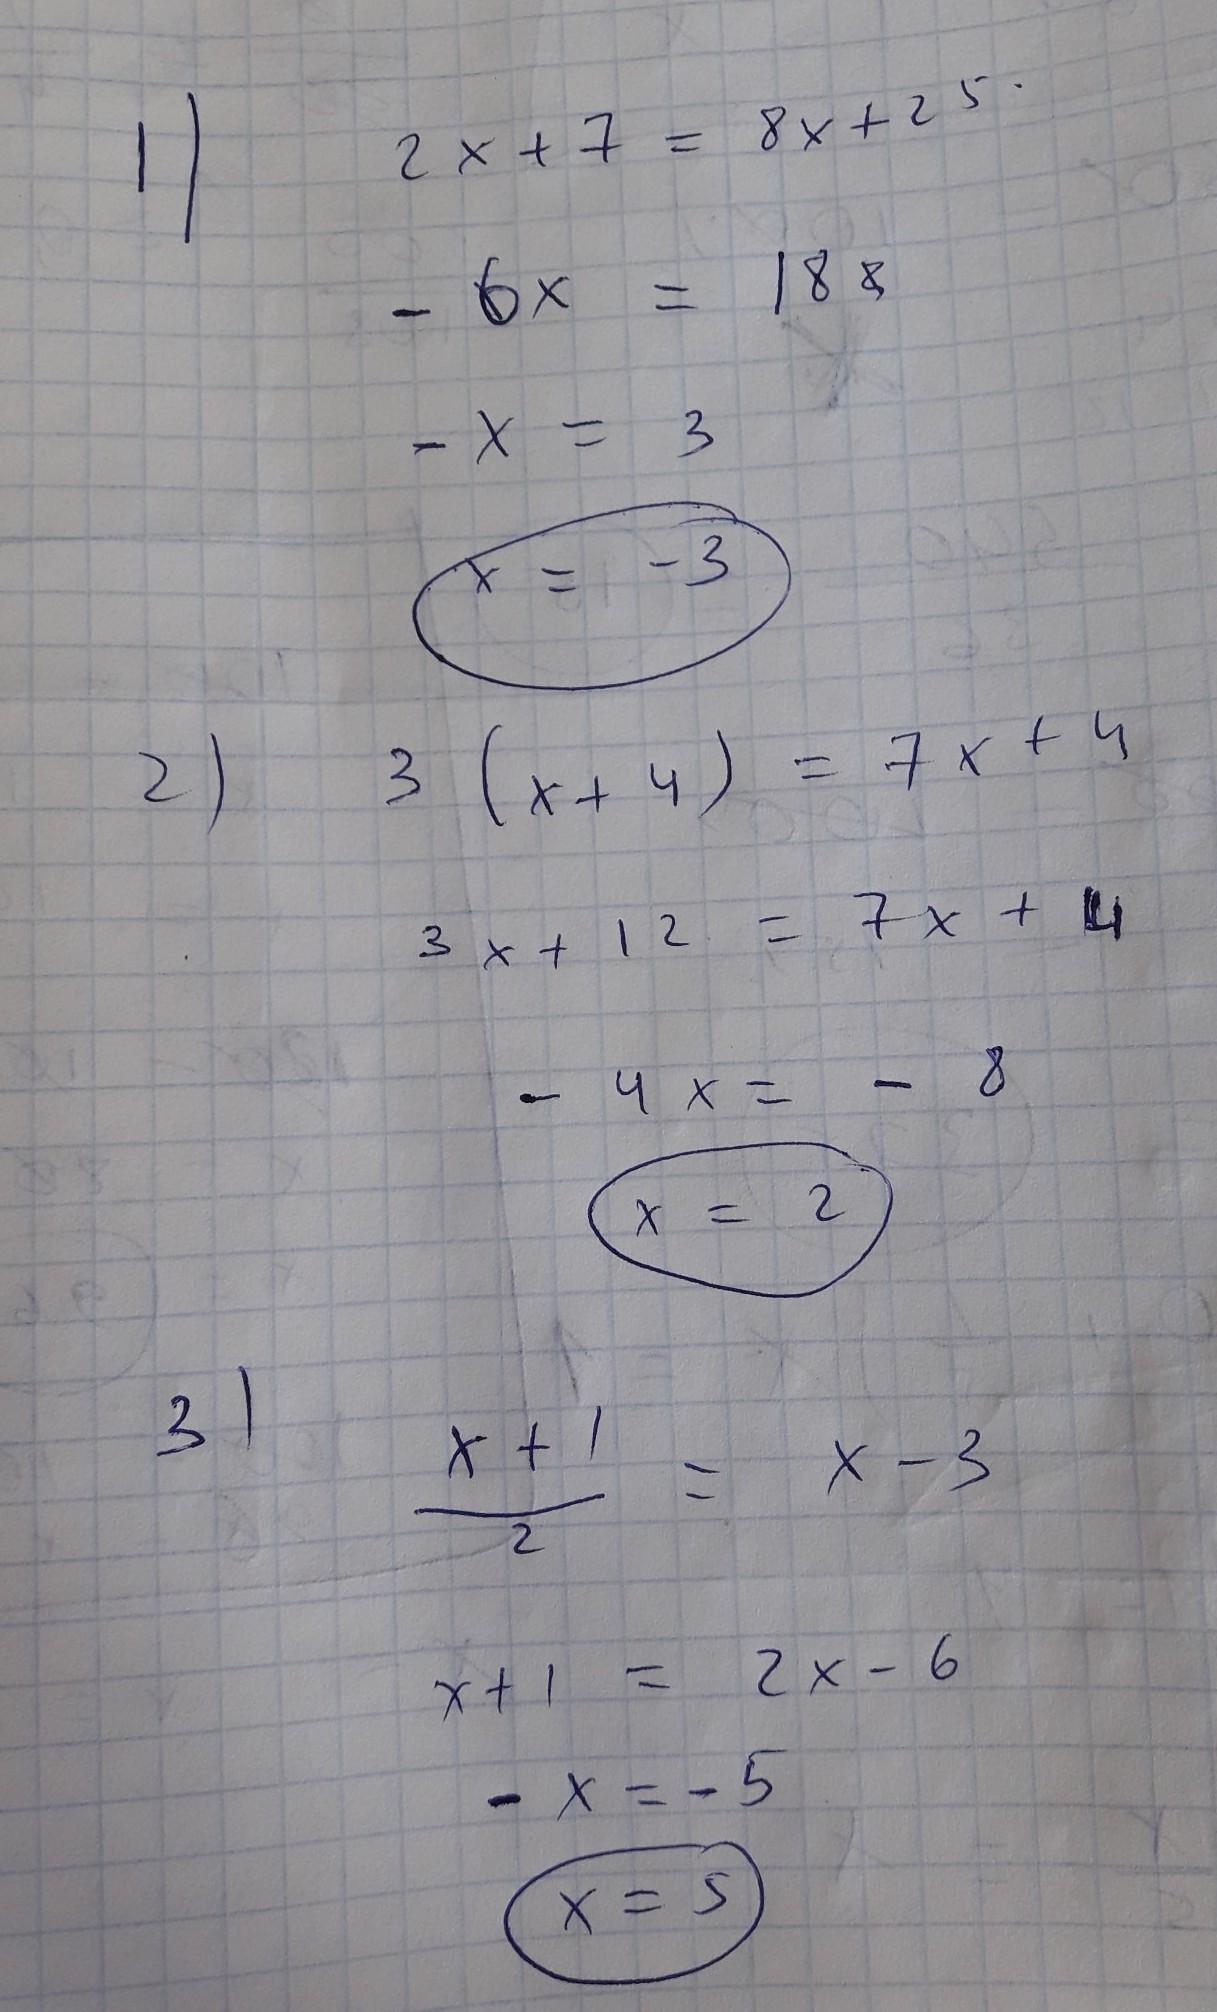 1) 2x + 7 = 8x + 25
- 6x = 18 8
- x = 3
x = -3
2) 3 (x + 4) = 7x + 4
3x + 12 = 7x + 4
- 4x = - 8
x = 2
3) x + 1 / 2 = x - 3
x + 1 = 2x - 6
- x = - 5
x = 5